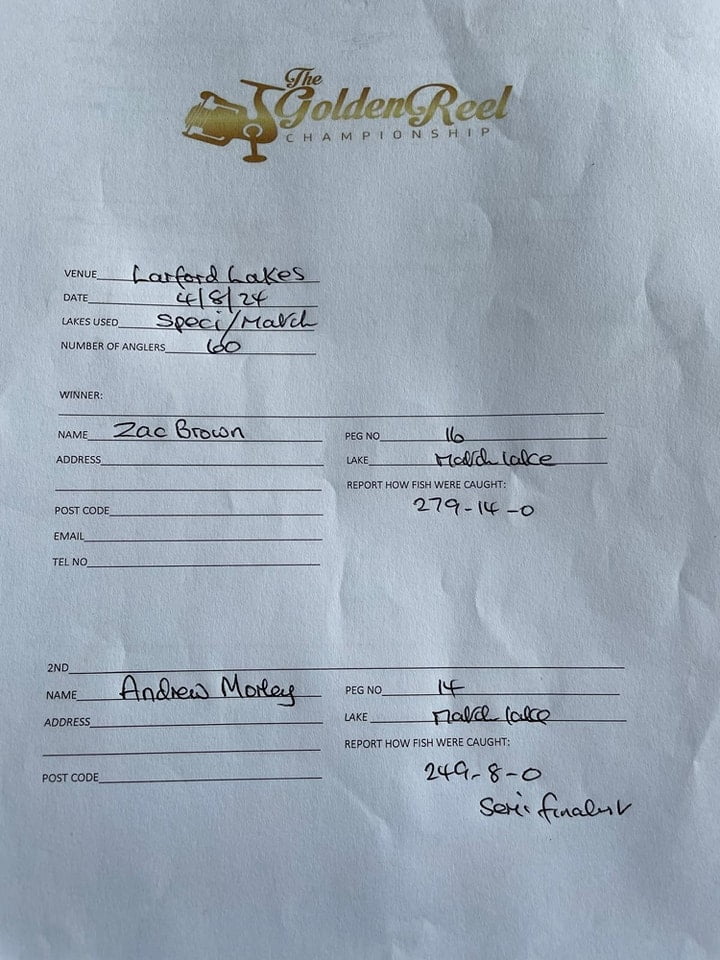 The
Golden Reel
CHAMPIONSHIP
VENUE Larford Lakes
DATE 4/8/24
LAKES USED Speci/Match
NUMBER OF ANGLERS 60
WINNER:
NAME Zac Brown
PEG NO 16
ADDRESS
LAKE Match lake
REPORT HOW FISH WERE CAUGHT:
279-14-0
POST CODE
EMAIL
TEL NO
2ND
NAME Andrew Morley
PEG NO 14
ADDRESS
LAKE Match lake
REPORT HOW FISH WERE CAUGHT:
249-8-0
POST CODE
Semi finalist